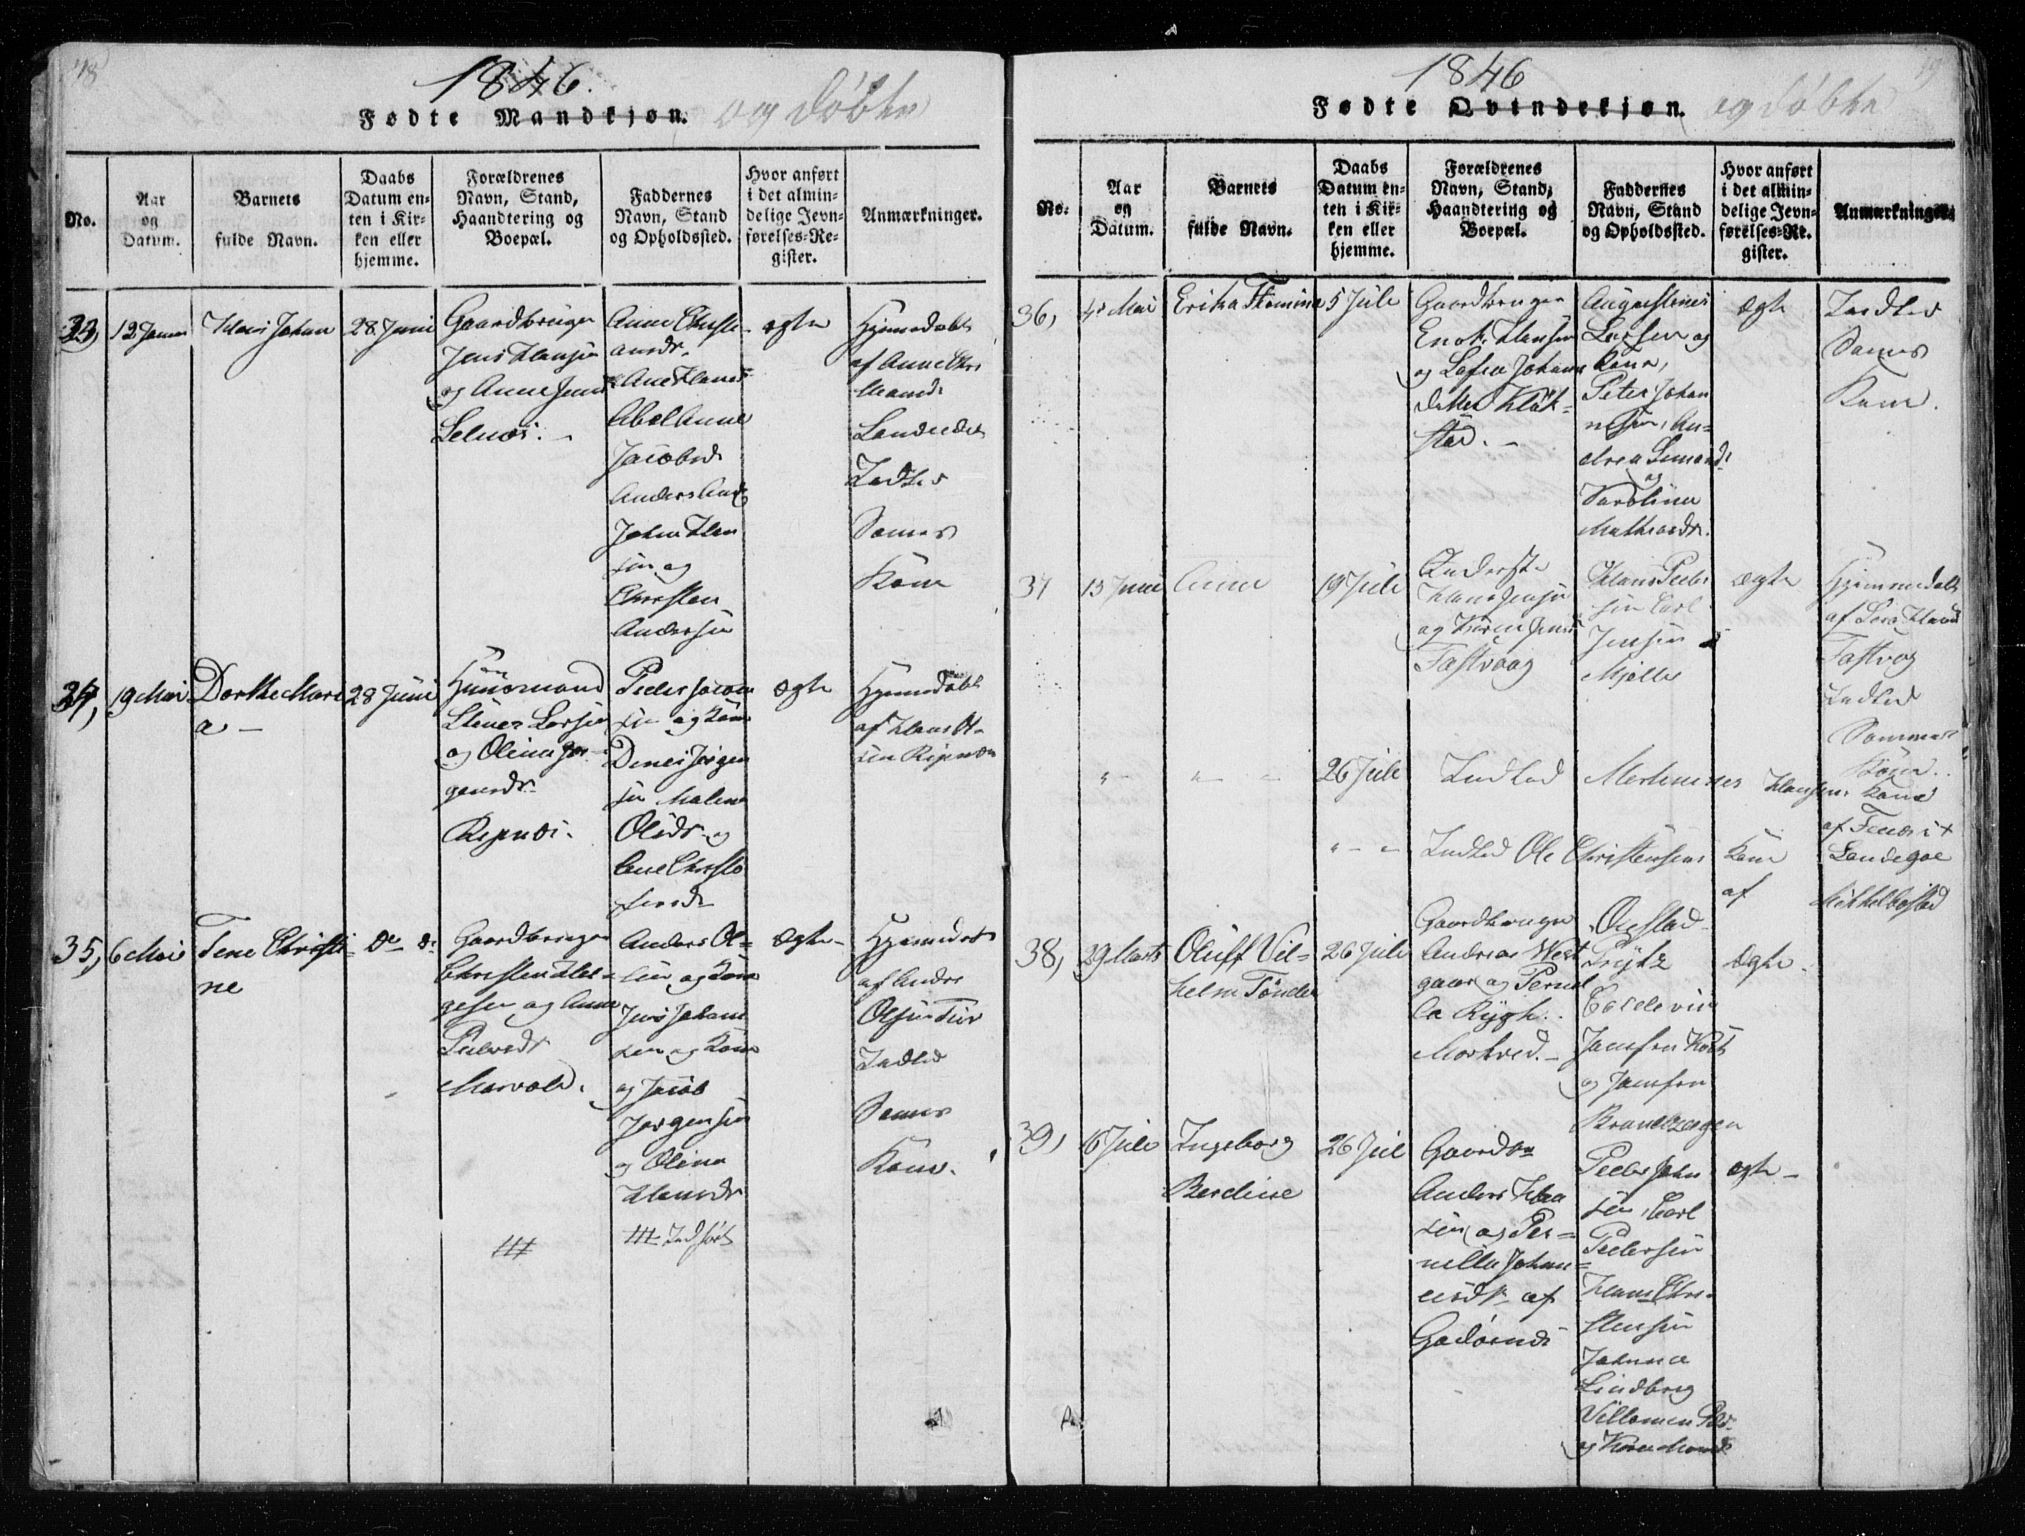 18
1846.
Fødte Mandkjøn. og døbte
No.
Aar og Datum.
Barnets fulde Navn.
Daabs Datum enten i Kirken eller hjemme.
Forældrenes Navn, Stand, Haandtering og Boepæl.
Faddernes Navn, Stand og Opholdssted.
Hvor anført i det almindelige Jevnførelses-Register.
Anmærkninger.
33,
12 Januar
Hans Johan
28 Juni
Gaardbruger
Jens Hansen
og Anne Jensd
Selnæs.
Anne Christi
ansdr.
Ane Hansd
Abel Anne
Jacobsd
Anders And
Johan Han
sen og
Christen
Andersen
ægte
Hjemedøbt
af Anne Chri
Landød
Indled
Sames
Kone
34,
19 Mai
Dorthe Mari
a
28 Juni
Huusmand
Steiner Larsen
og Olina Jør
gensdr
Ripnæs.
Peder Jacob
sen og Kone
Denes Jørgen
sen Malena
Olsdr og
Ane Christo
fersdr
Ægte
Hjemedøbt
af Hans Ol
sen Ripnæs
35,
6 Mai
Tene Christi-
ne
Do Do
Gaardbruger
Christen Hel-
gesen og Anne
Pedersdr
Marvold.
Anders Ol=
sen og Kone
Jens Johan
sen og Kone
og Jacob
Jørgensen
og Olina
Hansdr
Ægte
Hjemedøbt
af Anders
Olsen Tuv
Indled
Sames
Kone.
Indført
19
1846
Fødte Qvindekjøn. og døbte
No.
Aar og Datum.
Barnets fulde Navn.
Daabs Datum enten i Kirken eller hjemme.
Forældrenes Navn, Stand, Haandtering og Boepæl.
Faddernes Navn, Stand og Opholdssted.
Hvor anført i det almindelige Jevnførelses-Register.
Anmærkninger.
36,
4 Mai
Erika
5 Juli
Gaardbruger
Enok Hansen
og Lafea Johans
datter Kløk-
stad.
Augustinus
Larsen og
Kone,
Peter Johan
nesen, An=
drea Simonds
og
Karoline
Mathiasdr.
Ægte
Indled
Sames
Kone.
37
13 Juni
Anne
19 Juli
Inderste
Hans Jensen
og Karen Jensd
Fastvaag
Hans Peder
sen Carl
Jensen
Mjelle
Ægte
Hjemmedøbt
af Hans
Fastvog
Indled
Sammes
Kone.
26 Juli
Indled Mortinus Hansens Kone
af Fenes i
Indled Ole Christensens Kone Landegoe
af Mikkelbostad
38,
29 Marts
Oluff Vil=
helm Tønder
26 Juli
Gaardbruger
Andreas West
gaar og Pernil
la Rygh.
Mørkved.
Ougstad
Prytz
Coldevin
Jomfru Koch
og Jomfru
Brandtzægen
Ægte
39,
6 Juli
Ingeborg
Berdine
26 Jul
Gaardm
Anders Han
sen og Per=
nilla Johan=
nesdr af
Godøynes
Peder John
sen, Carl
Pedersen
Hans Chri-
stensen
Johanna
Lindbrig
Villomen Ped
og Karen
ægte